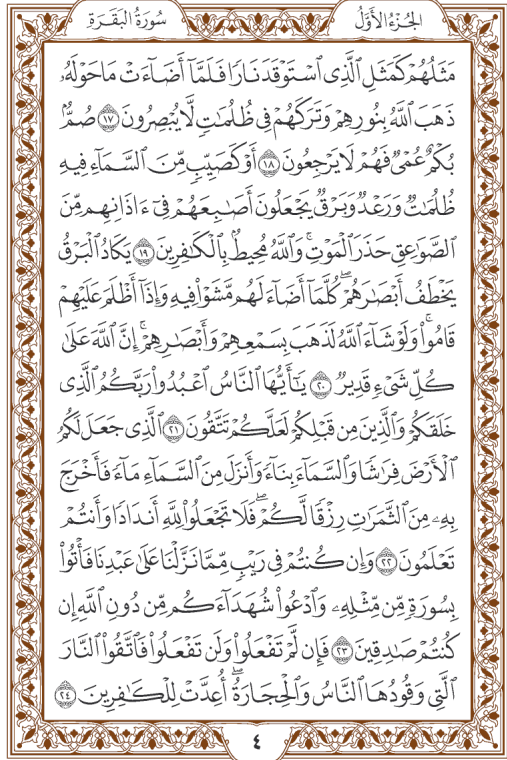 سُورَةُ البَقَرَةِ الجُزْءُ الأَوَّلُ
مَثَلُهُمْ كَمَثَلِ ٱلَّذِى ٱسْتَوْقَدَ نَارًا فَلَمَّآ أَضَآءَتْ مَا حَوْلَهُۥ
ذَهَبَ ٱللَّهُ بِنُورِهِمْ وَتَرَكَهُمْ فِى ظُلُمَـٰتٍ لَّا يُبْصِرُونَ ١٧ صُمٌّۢ
بُكْمٌ عُمْىٌ فَهُمْ لَا يَرْجِعُونَ ١٨ أَوْ كَصَيِّبٍ مِّنَ ٱلسَّمَآءِ فِيهِ
ظُلُمَـٰتٌ وَرَعْدٌ وَبَرْقٌ يَجْعَلُونَ أَصَـٰبِعَهُمْ فِىٓ ءَاذَانِهِم مِّنَ
ٱلصَّوَٰعِقِ حَذَرَ ٱلْمَوْتِ ۚ وَٱللَّهُ مُحِيطٌۢ بِٱلْكَـٰفِرِينَ ١٩ يَكَادُ ٱلْبَرْقُ
يَخْطَفُ أَبْصَـٰرَهُمْ ۖ كُلَّمَآ أَضَآءَ لَهُم مَّشَوْا۟ فِيهِ وَإِذَآ أَظْلَمَ عَلَيْهِمْ
قَامُوا۟ ۚ وَلَوْ شَآءَ ٱللَّهُ لَذَهَبَ بِسَمْعِهِمْ وَأَبْصَـٰرِهِمْ ۚ إِنَّ ٱللَّهَ عَلَىٰ
كُلِّ شَىْءٍ قَدِيرٌ ٢٠ يَـٰٓأَيُّهَا ٱلنَّاسُ ٱعْبُدُوا۟ رَبَّكُمُ ٱلَّذِى
خَلَقَكُمْ وَٱلَّذِينَ مِن قَبْلِكُمْ لَعَلَّكُمْ تَتَّقُونَ ٢١ ٱلَّذِى جَعَلَ لَكُمُ
ٱلْأَرْضَ فِرَٰشًا وَٱلسَّمَآءَ بِنَآءً وَأَنزَلَ مِنَ ٱلسَّمَآءِ مَآءً فَأَخْرَجَ
بِهِۦ مِنَ ٱلثَّمَرَٰتِ رِزْقًا لَّكُمْ ۖ فَلَا تَجْعَلُوا۟ لِلَّهِ أَندَادًا وَأَنتُمْ
تَعْلَمُونَ ٢٢ وَإِن كُنتُمْ فِى رَيْبٍ مِّمَّا نَزَّلْنَا عَلَىٰ عَبْدِنَا فَأْتُوا۟
بِسُورَةٍ مِّن مِّثْلِهِۦ وَٱدْعُوا۟ شُهَدَآءَكُم مِّن دُونِ ٱللَّهِ إِن
كُنتُمْ صَـٰدِقِينَ ٢٣ فَإِن لَّمْ تَفْعَلُوا۟ وَلَن تَفْعَلُوا۟ فَٱتَّقُوا۟ ٱلنَّارَ
ٱلَّتِى وَقُودُهَا ٱلنَّاسُ وَٱلْحِجَارَةُ ۖ أُعِدَّتْ لِلْكَـٰفِرِينَ ٢٤
٤